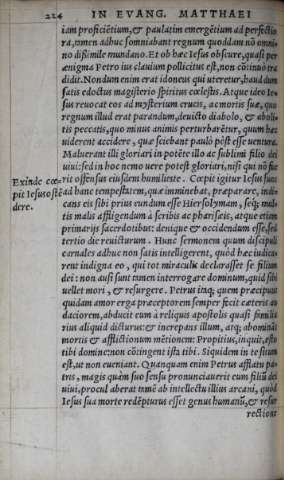 224 IN EVANG. MATTHAEI
iam proficiẽtium, & paulatim emergẽtium ad perfectio
ra, tamen adhuc somniabant regnum quoddam nõ omni-
no dissimile mundano. Et ob hæc Iesus obscure, quasi per
ænigma Petro ius clauium pollicitus est, non cõtinuò tra
didit. Nondum enim erat idoneus qui uteretur, haud dum
satis edoctus magisterio spiritus cœlestis. Atque ideo Ie-
sus reuocat eos ad mysterium crucis, ac mortis suæ, quo
regnum illud erat parandum, deuicto diabolo, & aboli-
tis peccatis, quo minus animis perturbarẽtur, quum hæc
uiderent accidere, quæ sciebant paulò pòst esse uentura.
Malueront illi gloriari in potẽte illo ac sublimi filio dei
uiui: sed in hoc nemo uere potest gloriari, nisi qui nõ fue
Exinde cœ-
pit Iesus ostẽ
dere.
rit offensus eiusdem humilitate. Cœpit igitur Iesus suos
ad hanc tempestatem, quæ imminebat, præparare, indi-
cans eis sibi prius eundum esse Hierosolymam, seq; mul-
tis malis affligendum à scribis ac pharisæis, atque etiam
primarijs sacerdotibus: denique & occidendum esse, sed
tertio die reuicturum. Hunc sermonem quum discipuli
carnales adhuc non satis intelligerent, quòd hæc iudica-
rent indigna eo, qui tot miraculis declarasset se filium
dei: non ausi sunt tamen interrogare dominum, quid sibi
uellet mori, & resurgere. Petrus itaq; quem præcipuus
quidam amor erga præceptorem semper fecit cæteris au
daciorem, abducit eum à reliquis apostolis quasi familia
rius aliquid dicturus: & increpans illum, atq; abominãs
mortis & afflictionum mẽtionem: Propitius, inquit, esto
tibi domine: non cõtingent ista tibi. Siquidem in te situm
est, ut non eueniant. Quanquam enim Petrus afflatu pa-
tris, magis quàm suo sensu pronunciauerit eum filiũ dei
uiui, procul aberat tamẽ ab intellectu illius arcani, quòd
Iesus sua morte redẽpturus esset genus humanũ, & resur
rectione